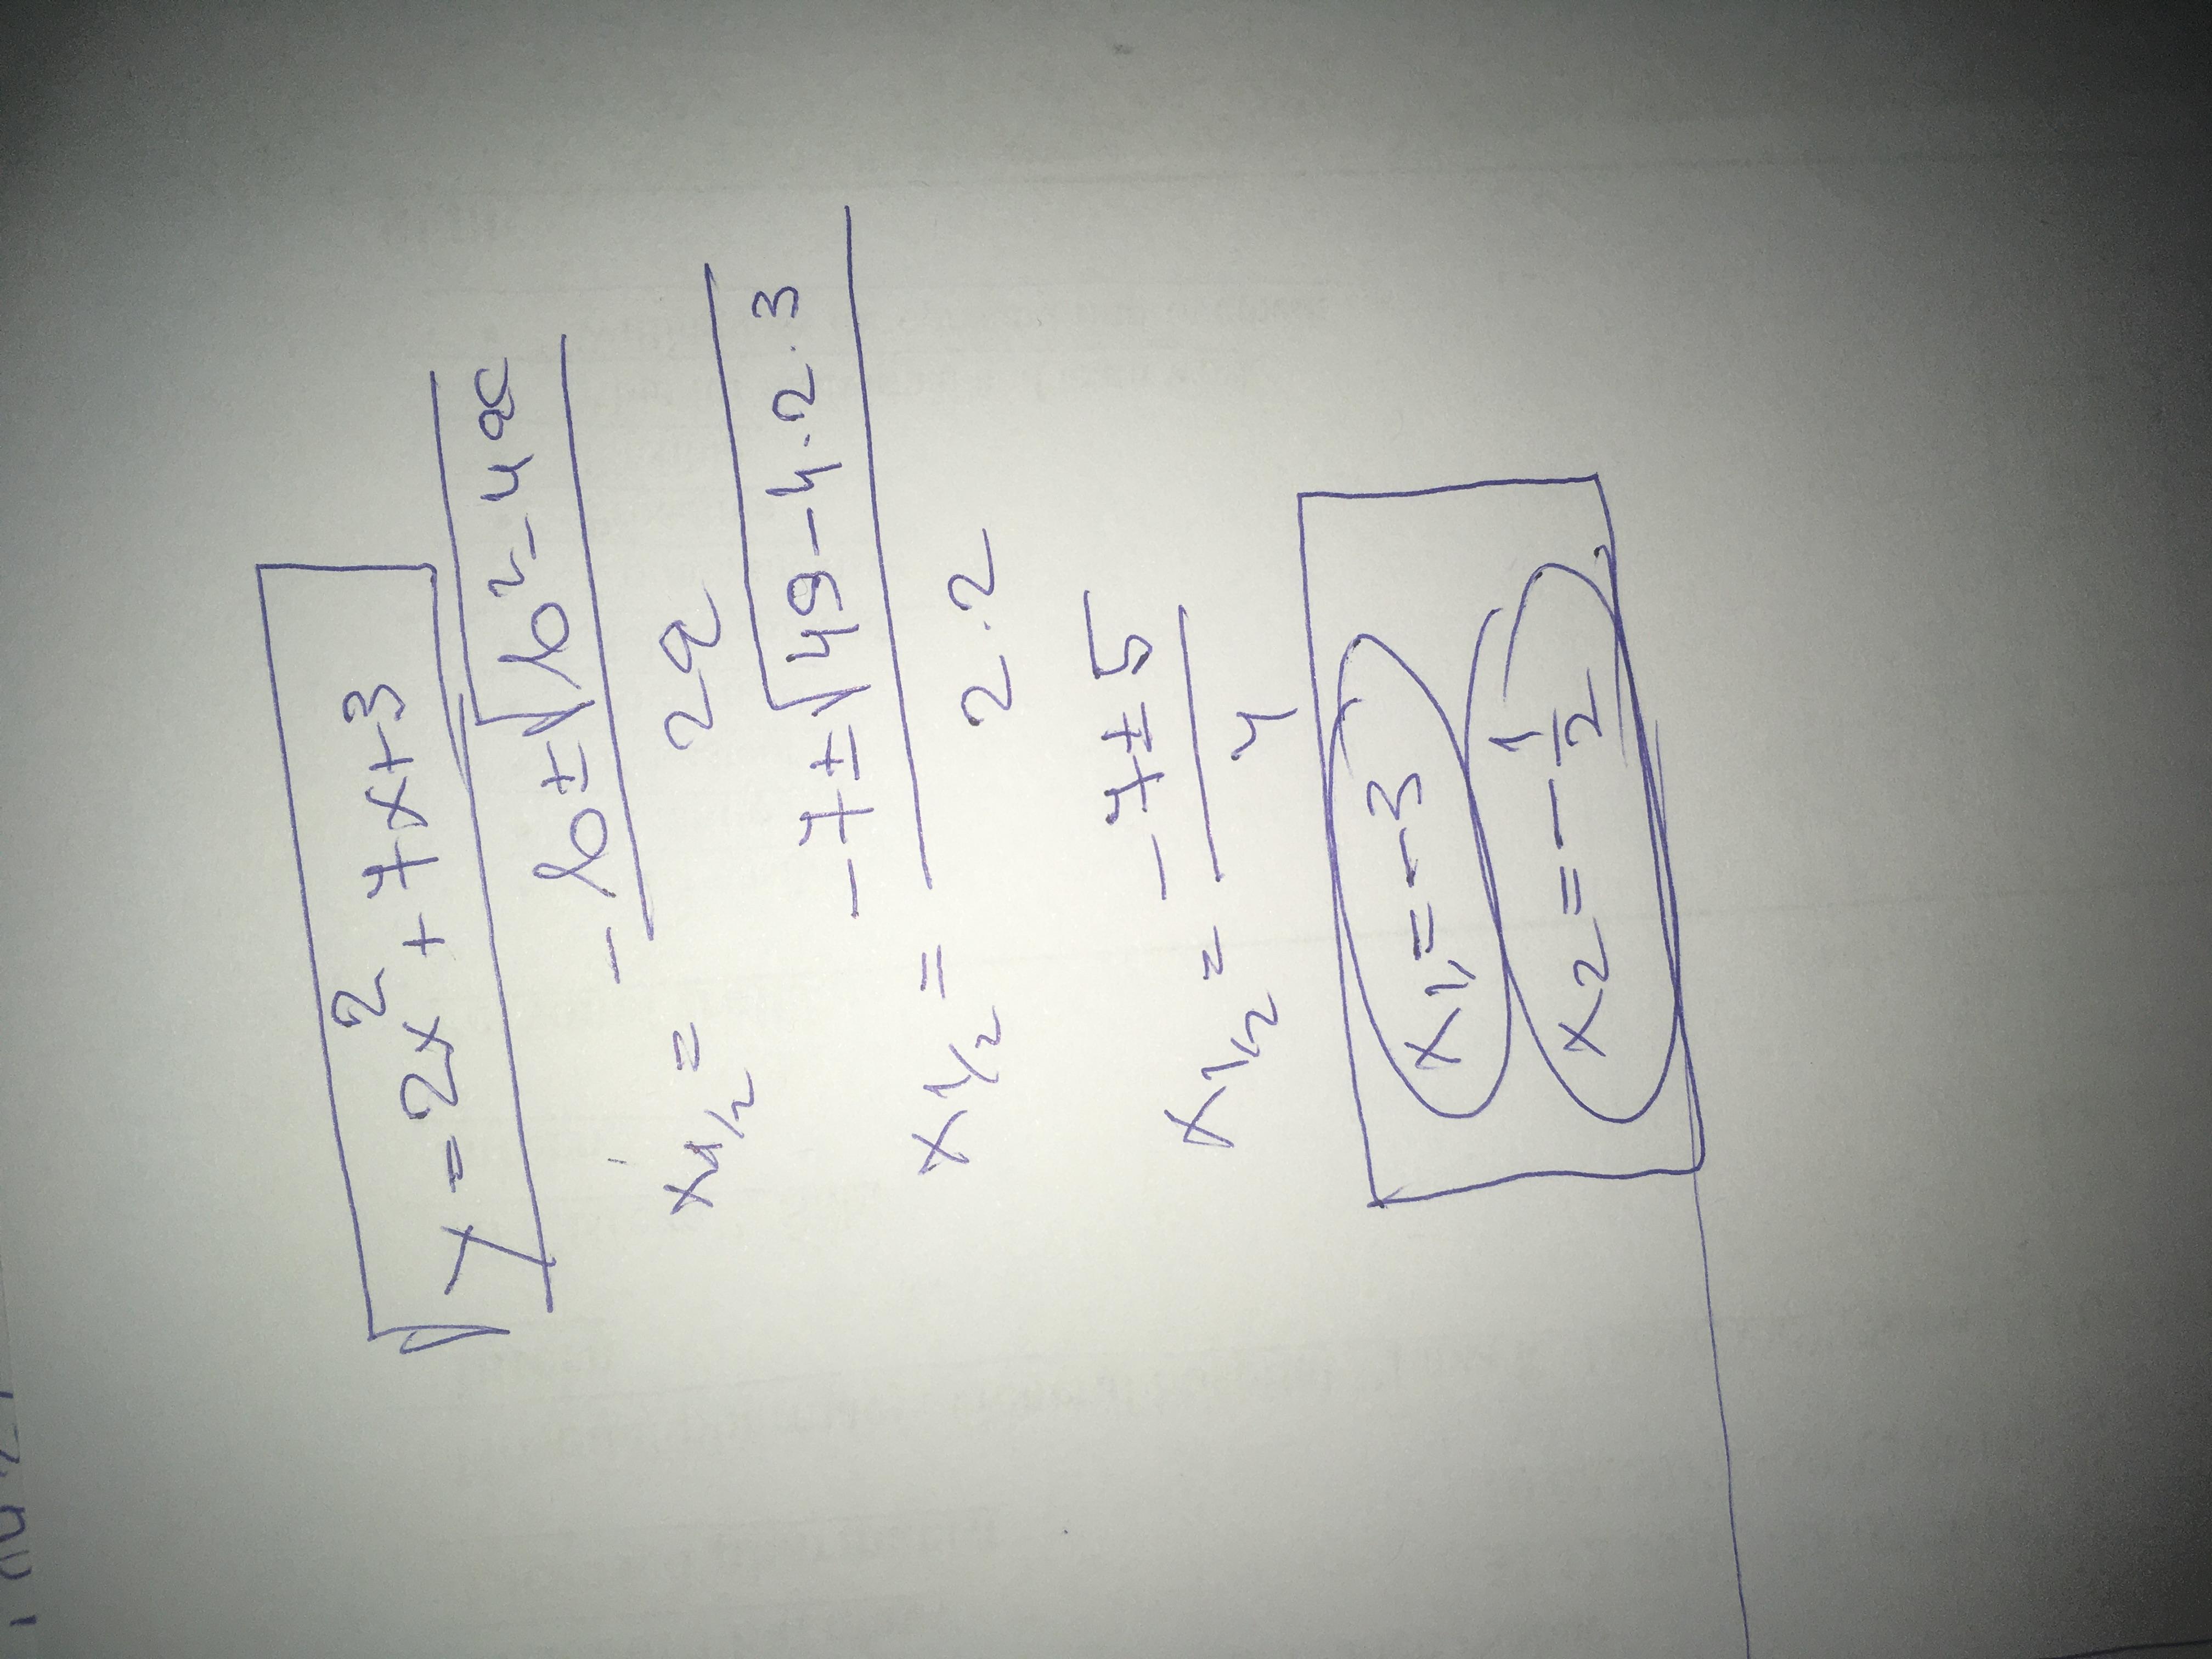 y = 2x² + 7x + 3
x1/2 = (-b ± √(b² - 4ac)) / 2a
x1/2 = (-7 ± √(49 - 4·2·3)) / 2·2
x1/2 = (-7 ± 5) / 4
x1 = -3
x2 = -1/2